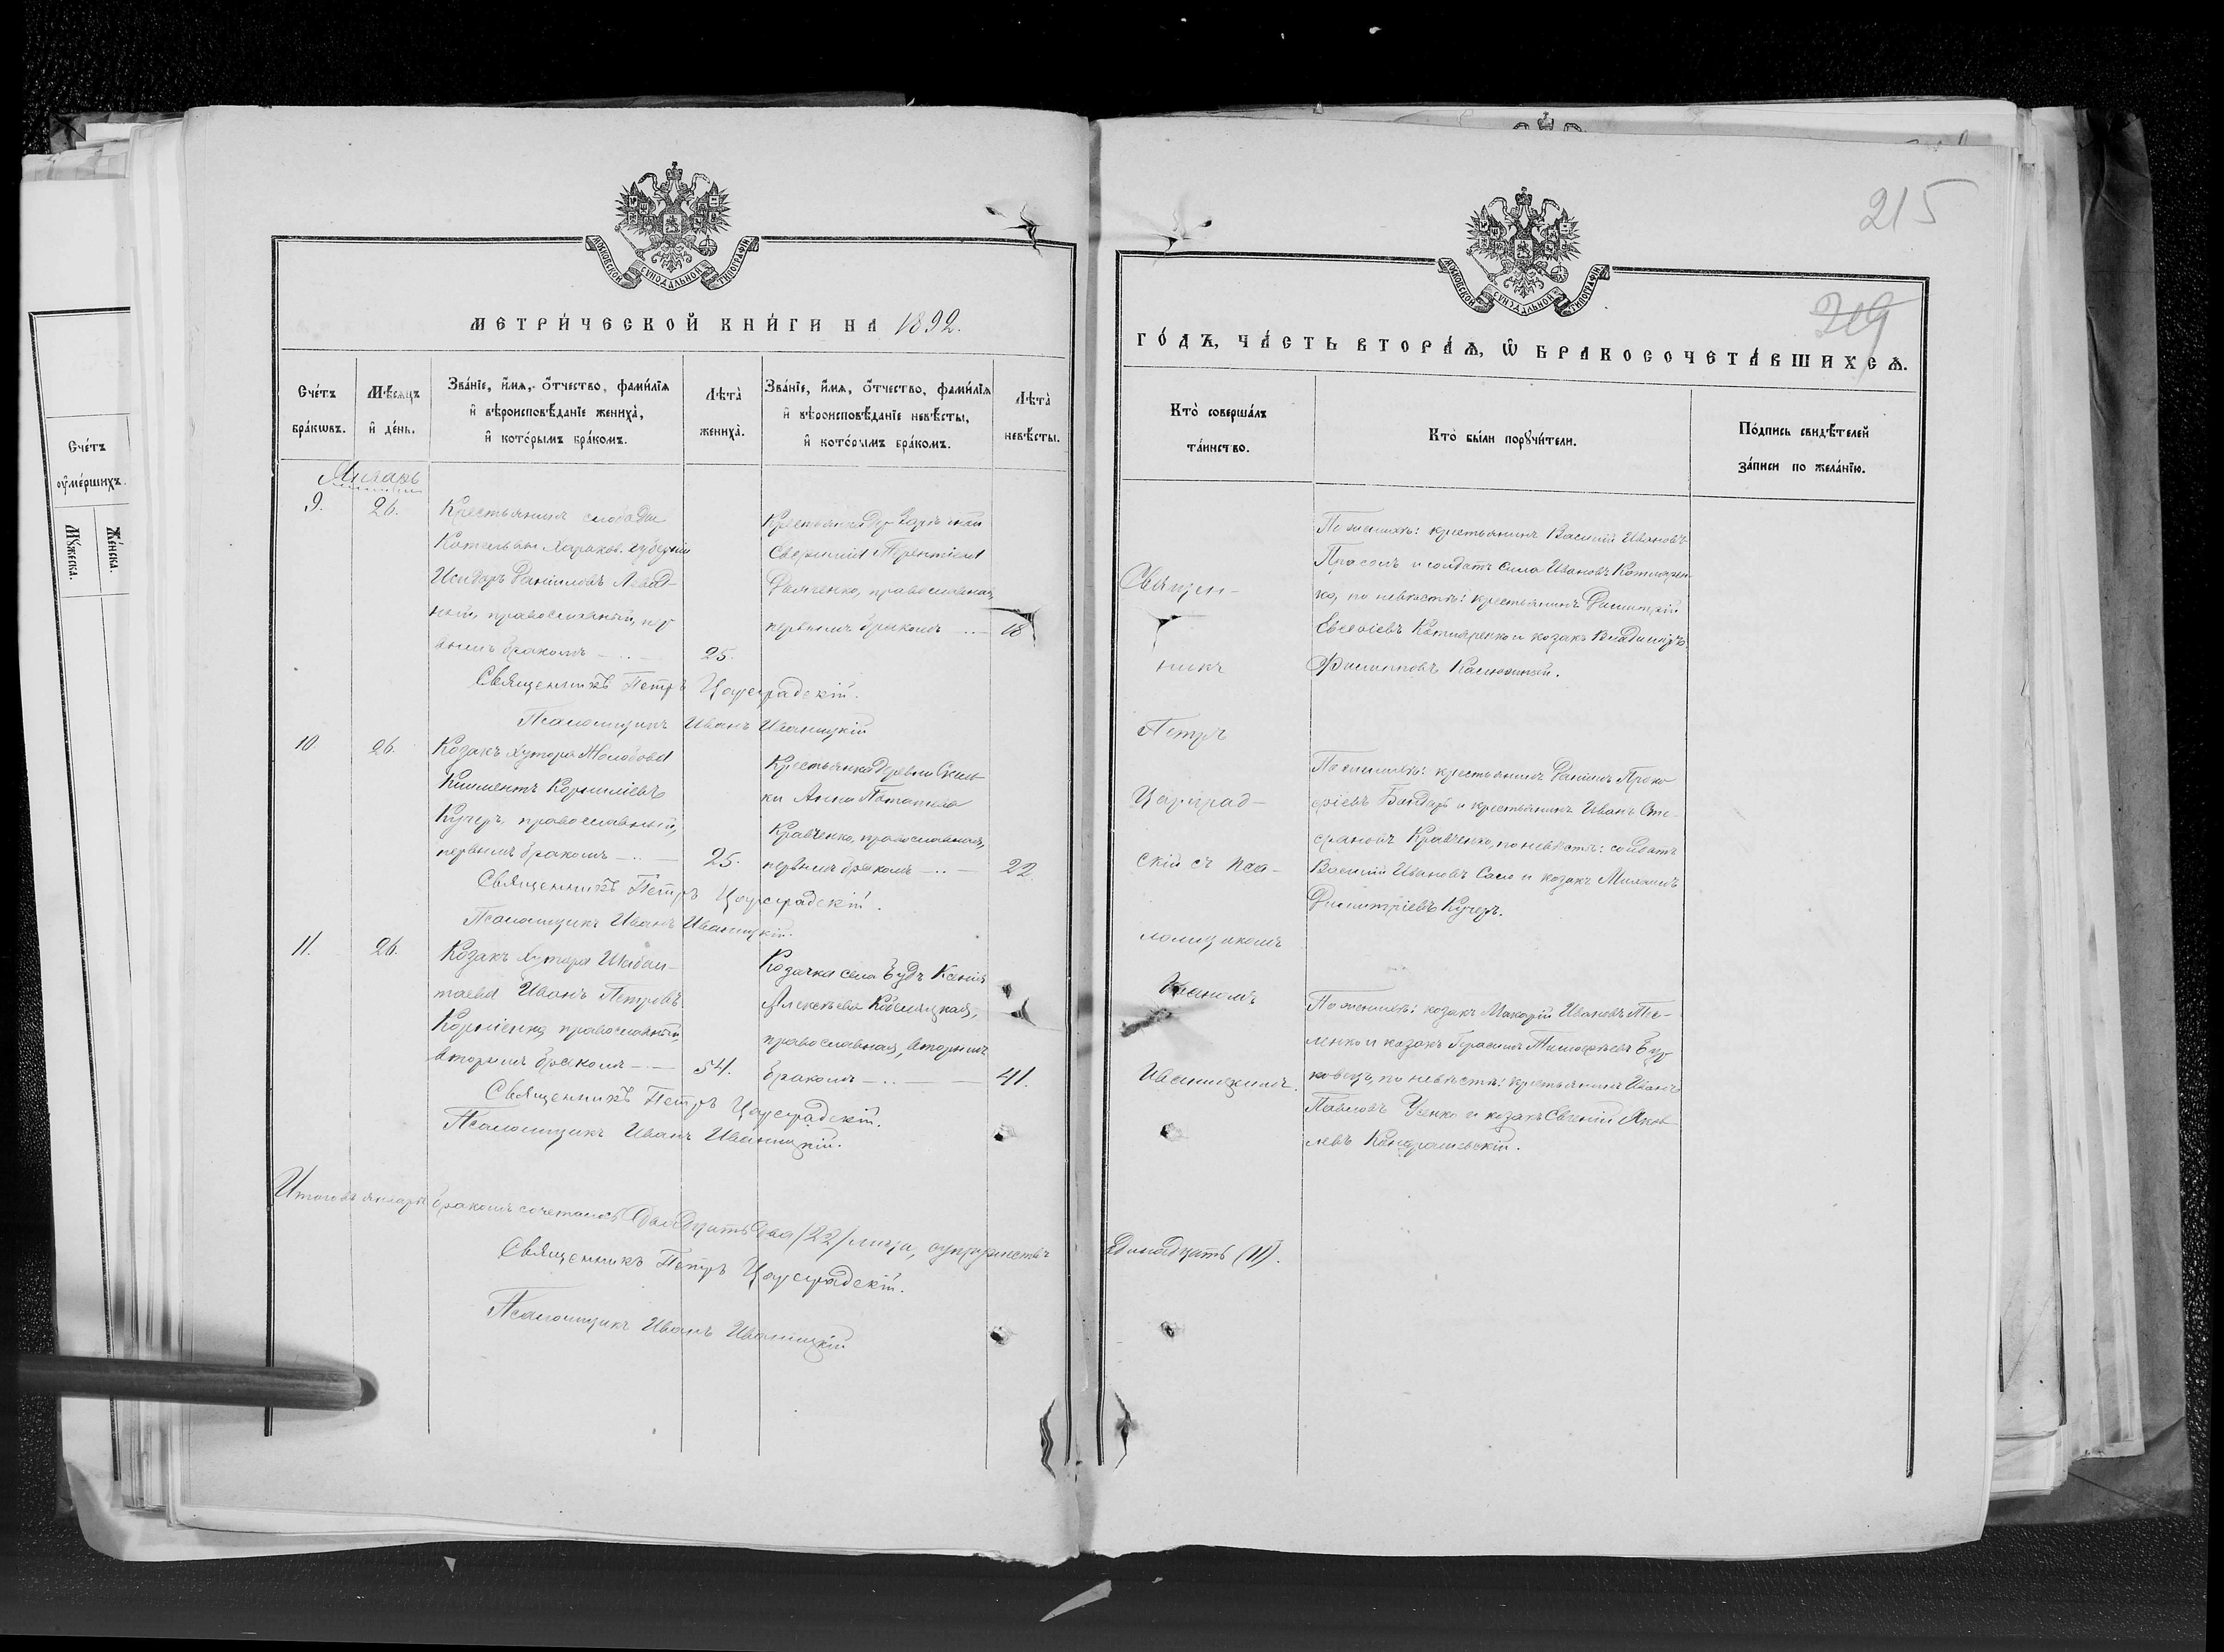 215
319
МОСКОВСКОЙ СУНОДАЛЬНОЙ ТИПОГРАФІИ
МЕТРИ́ЧЕСКОЙ КНИ́ГИ НА 1892.
Сче́тъ бра́кѡвъ.
Мѣ́сяцъ и҆ де́нь.
Зва́нїе, и҆́мѧ, ѻ҆́тчество, фами́лїѧ
и҆ вѣроисповѣ́данїе жениха̀,
и҆ кото́рымъ бра́комъ.
Лѣта̀ жениха̀.
Зва́нїе, и҆́мѧ, ѻ҆́тчество, фами́лїѧ
и҆ вѣроисповѣ́данїе невѣ́сты,
и҆ кото́рымъ бра́комъ.
Лѣта̀ невѣ́сты.
9. 26.
Крестьянинъ слободы
Котельвы Харьков. губерніи
Исидоръ Даніиловъ
ный, православный, пер
вымъ бракомъ — 25.
Крестьянка
Терентіева
православная,
первымъ бракомъ — 18
Священникъ Петръ Цареградскій.
Псаломщикъ Иванъ Иваницкій
10 26.
Козакъ хутора
Климентъ Корниліевъ
Кучеръ, православный,
первымъ бракомъ — 25.
Крестьянка деревни
ки Анна Потапова
Кравченко, православная,
первымъ бракомъ — 22
Священникъ Петръ Цареградскій.
Псаломщикъ Иванъ Иваницкій.
11. 26.
Козакъ хутора
Иванъ Петровъ
Корніенко, православный,
вторымъ бракомъ — 54.
Козачка села Будъ Ксенія
Алексѣева
православная, вторымъ
бракомъ — 41.
Священникъ Петръ Цареградскій.
Псаломщикъ Иванъ Иваницкій.
Итого въ январѣ бракомъ сочеталось двадцать два /22/ лица, супружествъ
Священникъ Петръ Цареградскій.
Псаломщикъ Иванъ Иваницкій
МОСКОВСКОЙ СУНОДАЛЬНОЙ ТИПОГРАФІИ
ГО́ДЪ, ЧА́СТЬ ВТОРА́Ѧ, Ѡ҆ БРАКОСОЧЕТА́ВШИХСѦ.
Кто̀ соверша́лъ
та́инство.
Кто̀ бы́ли порꙋчи́тели.
По́дпись свидѣ́телей
за́писи по жела́нїю.
Священ-
никъ
Петръ
Цариград-
скій съ пса-
ломщикомъ
Иваномъ
Иваницкимъ.
По женихѣ: крестьянинъ Василій Ивановъ
Прасолъ и солдатъ Сила Ивановъ Котлярен-
ко, по невѣстѣ: крестьянинъ Димитрій
Евсевіевъ Котляренко и козакъ Владиміръ
Филипповъ
По женихѣ: крестьянинъ Даніилъ Проко-
фіевъ Бондарь и крестьянинъ Иванъ Сте-
фановъ Кравченко, по невѣстѣ: солдатъ
Василій Ивановъ Сало и козакъ Михаилъ
Димитріевъ Кучеръ.
По женихѣ: козакъ Макарій Ивановъ Пи-
ленко и козакъ Герасимъ Тимофѣевъ Бур
ковецъ, по невѣстѣ: крестьянинъ Иванъ
Павловъ Усенко и козакъ Евгеній Яков
левъ
Одинадцать (11).
Сче́тъ
ᲂу҆ме́ршихъ.
Мꙋ́жеска.
Же́нска.